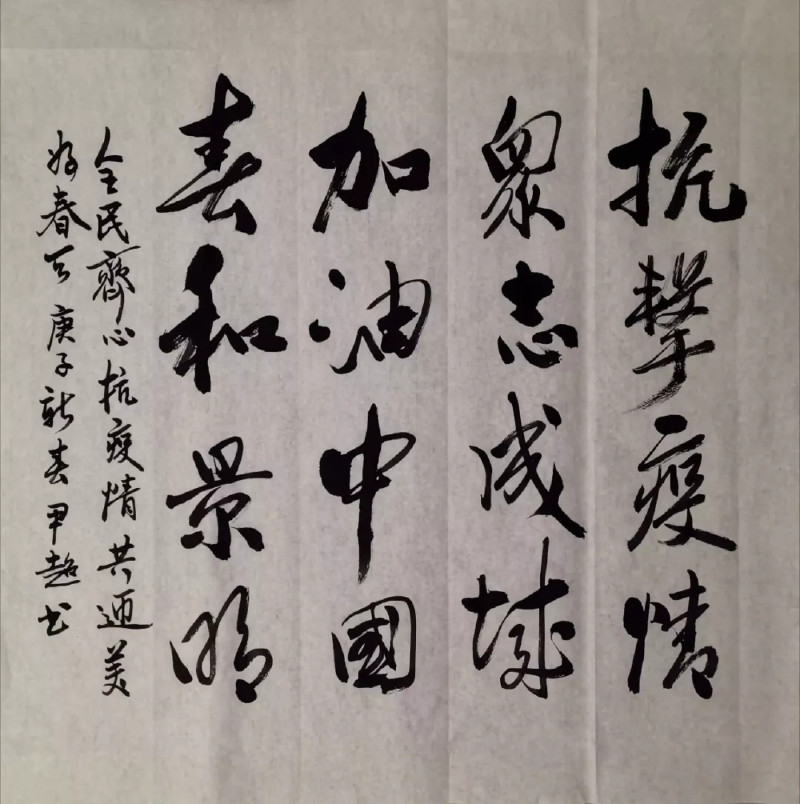 抗擊疫情
眾志成城
加油中國
春和景明
全民齊心抗疫情共迎美
好春天庚子新春甲超书